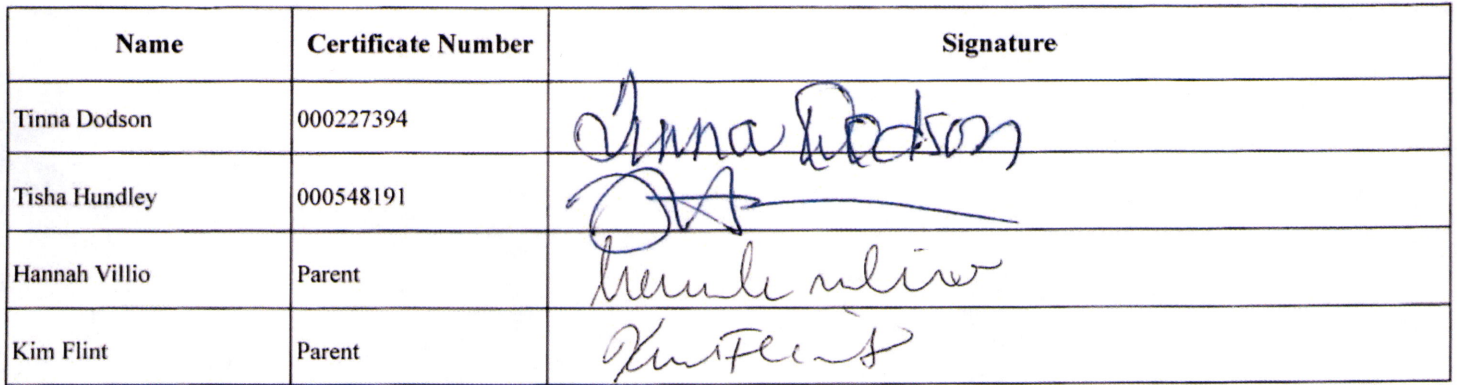 Name Certificate Number Signature
Tinna Dodson 000227394 Tinna Dodson
Tisha Hundley 000548191
Hannah Villio Parent
Kim Flint Parent Kim Flint